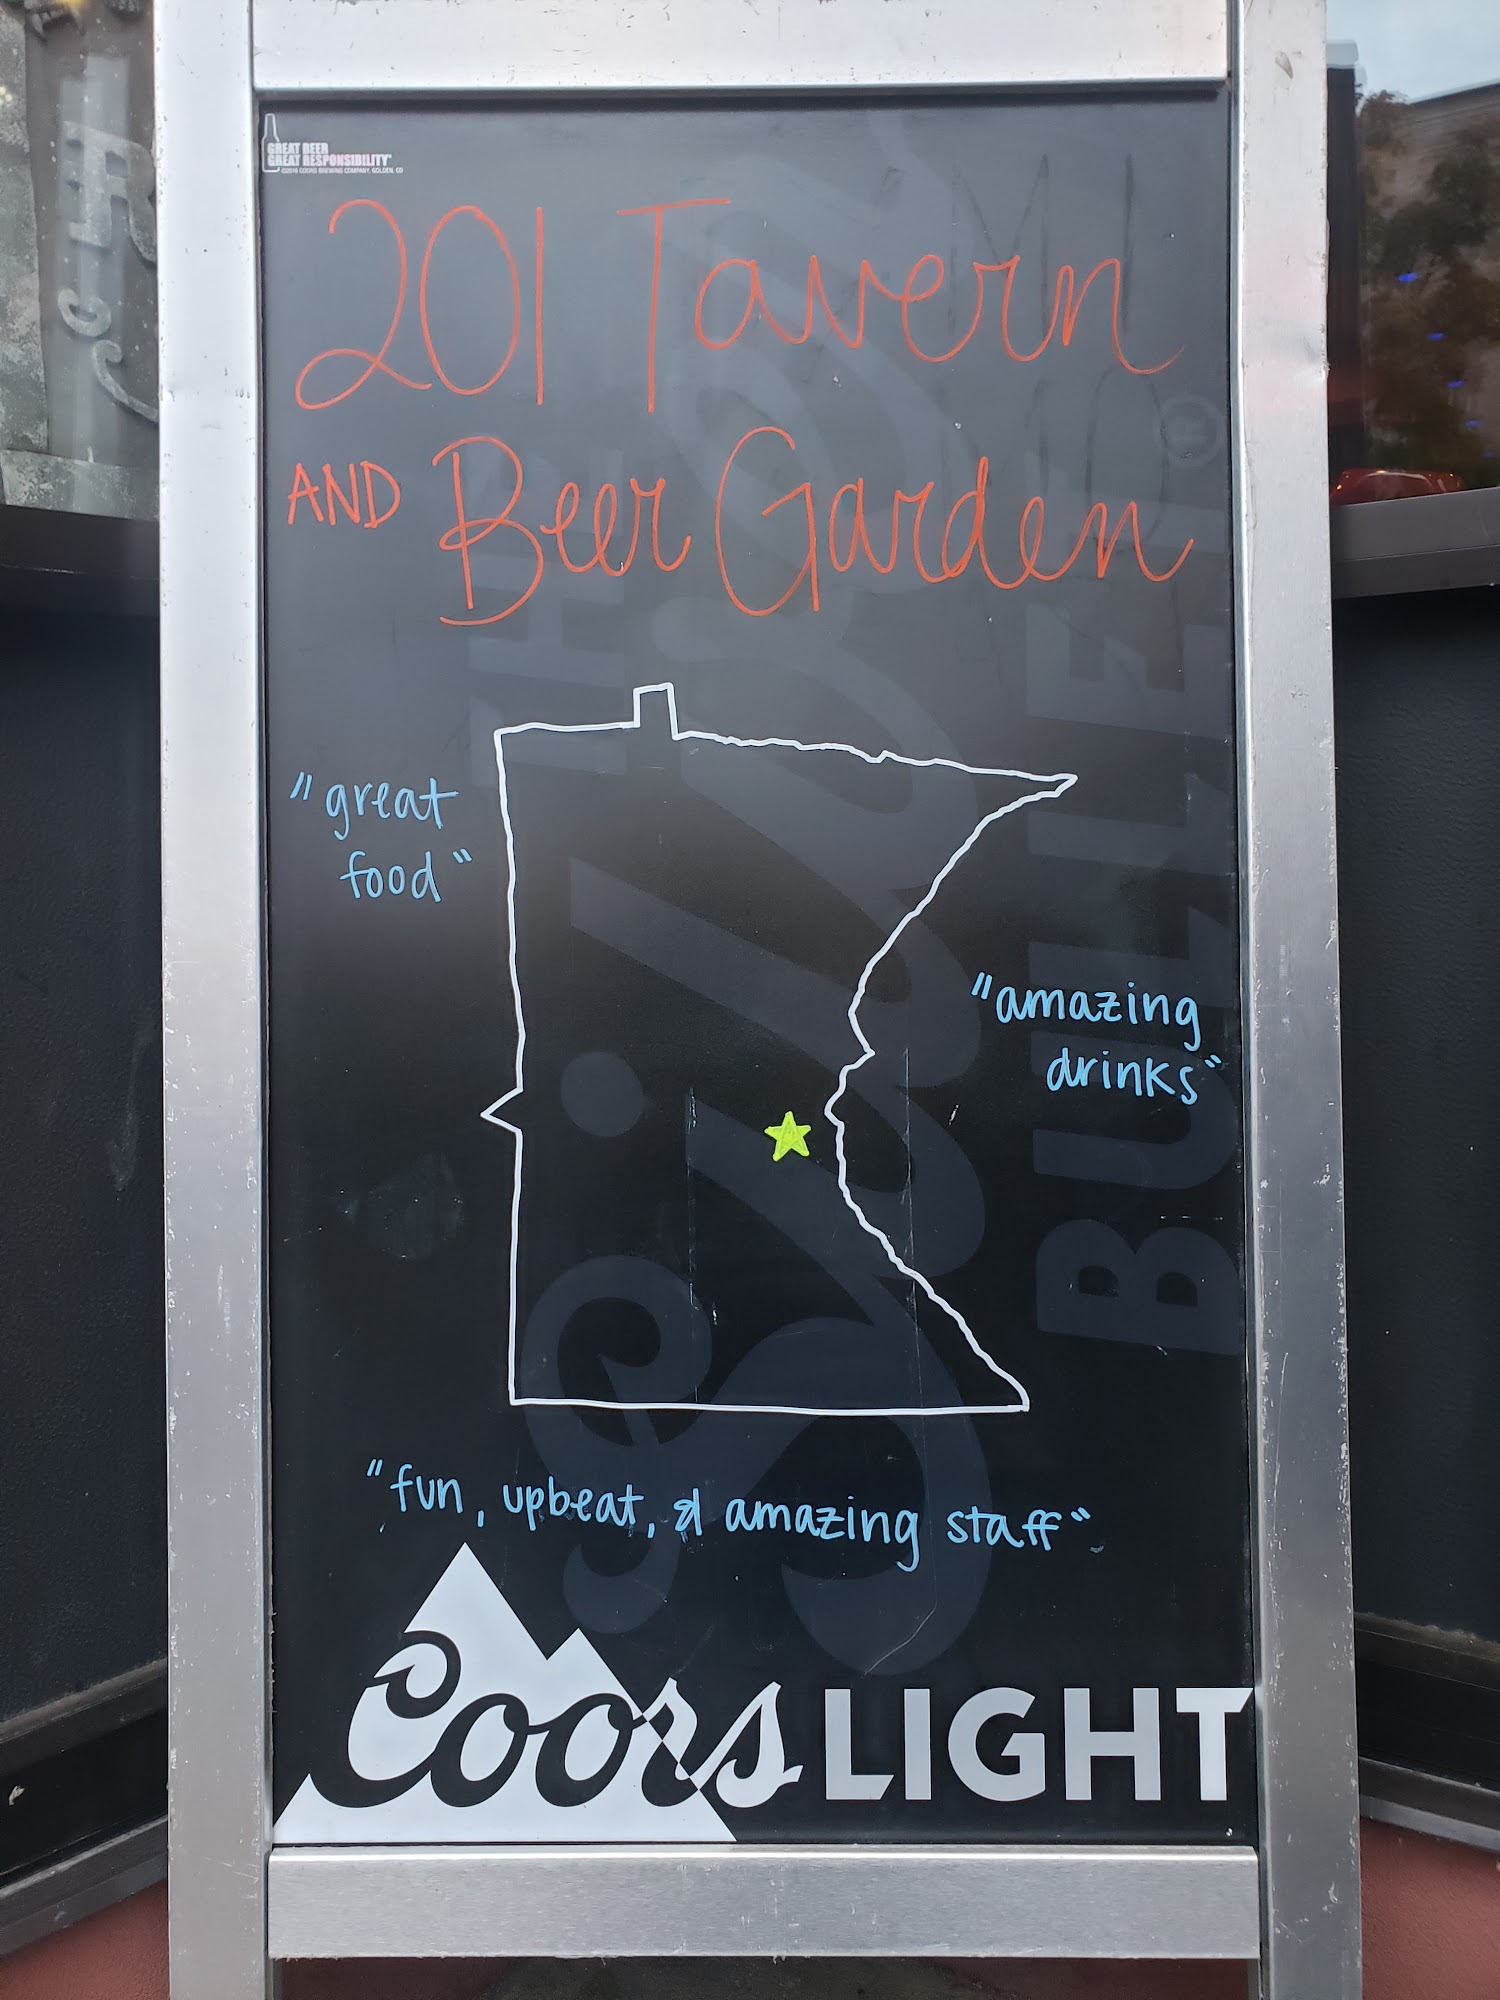 GREAT BEER
GREAT RESPONSIBILITY®
©2016 COORS BREWING COMPANY, GOLDEN, CO
201 Tavern
AND Beer Garden
"great
food"
"amazing
drinks"
"fun, upbeat, & amazing staff"
Coors LIGHT
THE
Silver
BULLET
®